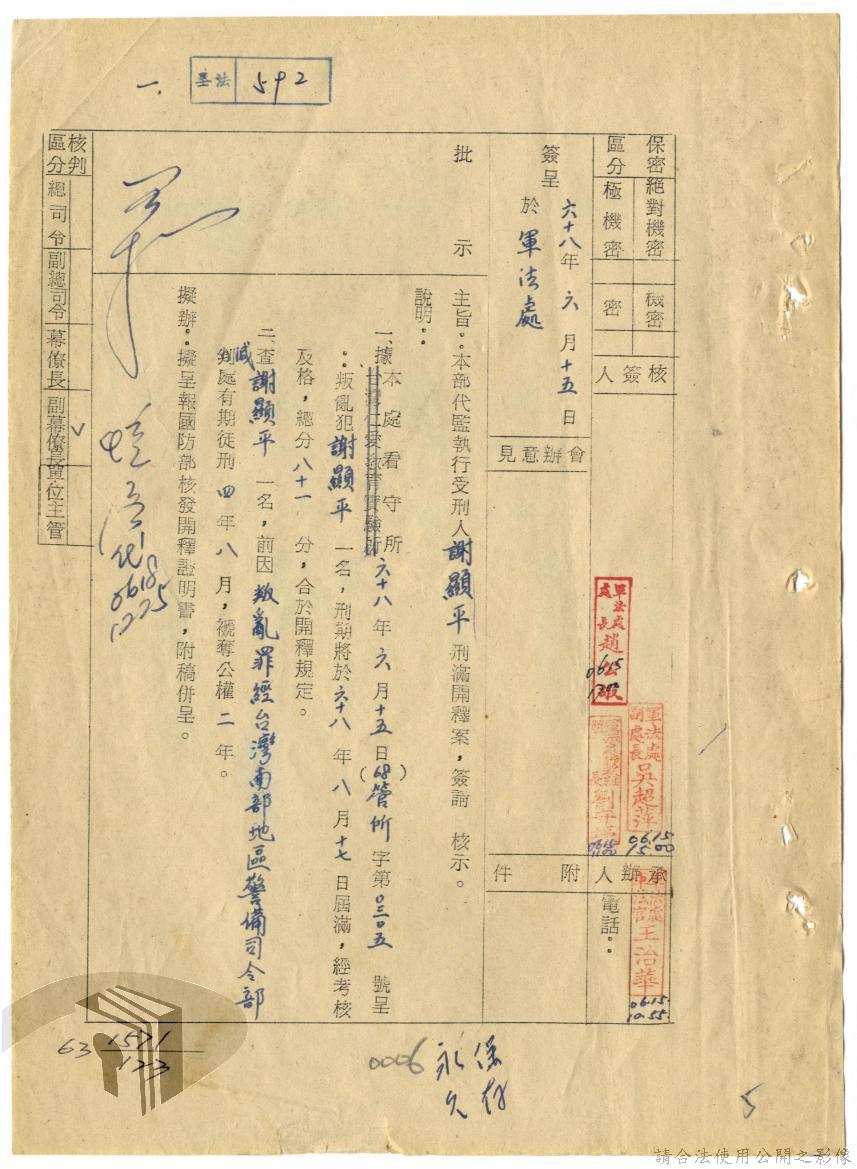 一.
法 592
保密區分
絕對機密
極機密
機密
密
核簽人
簽呈
於
六十八年六月十五日
軍法處
會辦意見
附件
承辦人
電話：
批示
主旨：本部代監執行受刑人謝顯平刑滿開釋案，簽請 核示。
說明：
一、據本處看守所六十八年六月十五日(68)管所字第〇三〇五號呈
台灣仁愛教育實驗所
：叛亂犯謝顯平一名，刑期將於六十八年八月十七日屆滿，經考核
及格，總分八十一分，合於開釋規定。
二、查謝顯平一名，前因叛亂罪經台灣南部地區警備司令部
減
處有期徒刑四年八月，褫奪公權二年。
擬辦：擬呈報國防部核發開釋證明書，附稿併呈。
核判區分
總司令
副總司令
幕僚長
副幕僚長
單位主管
V
0618
1725
軍法處
處長
趙公嘏
0615
軍法處
副處長
吳超萍
0615
1500
0615
1100
王治華
0615
1055
63 1571/123
0006
永久
保存
5
請合法使用公開之影像